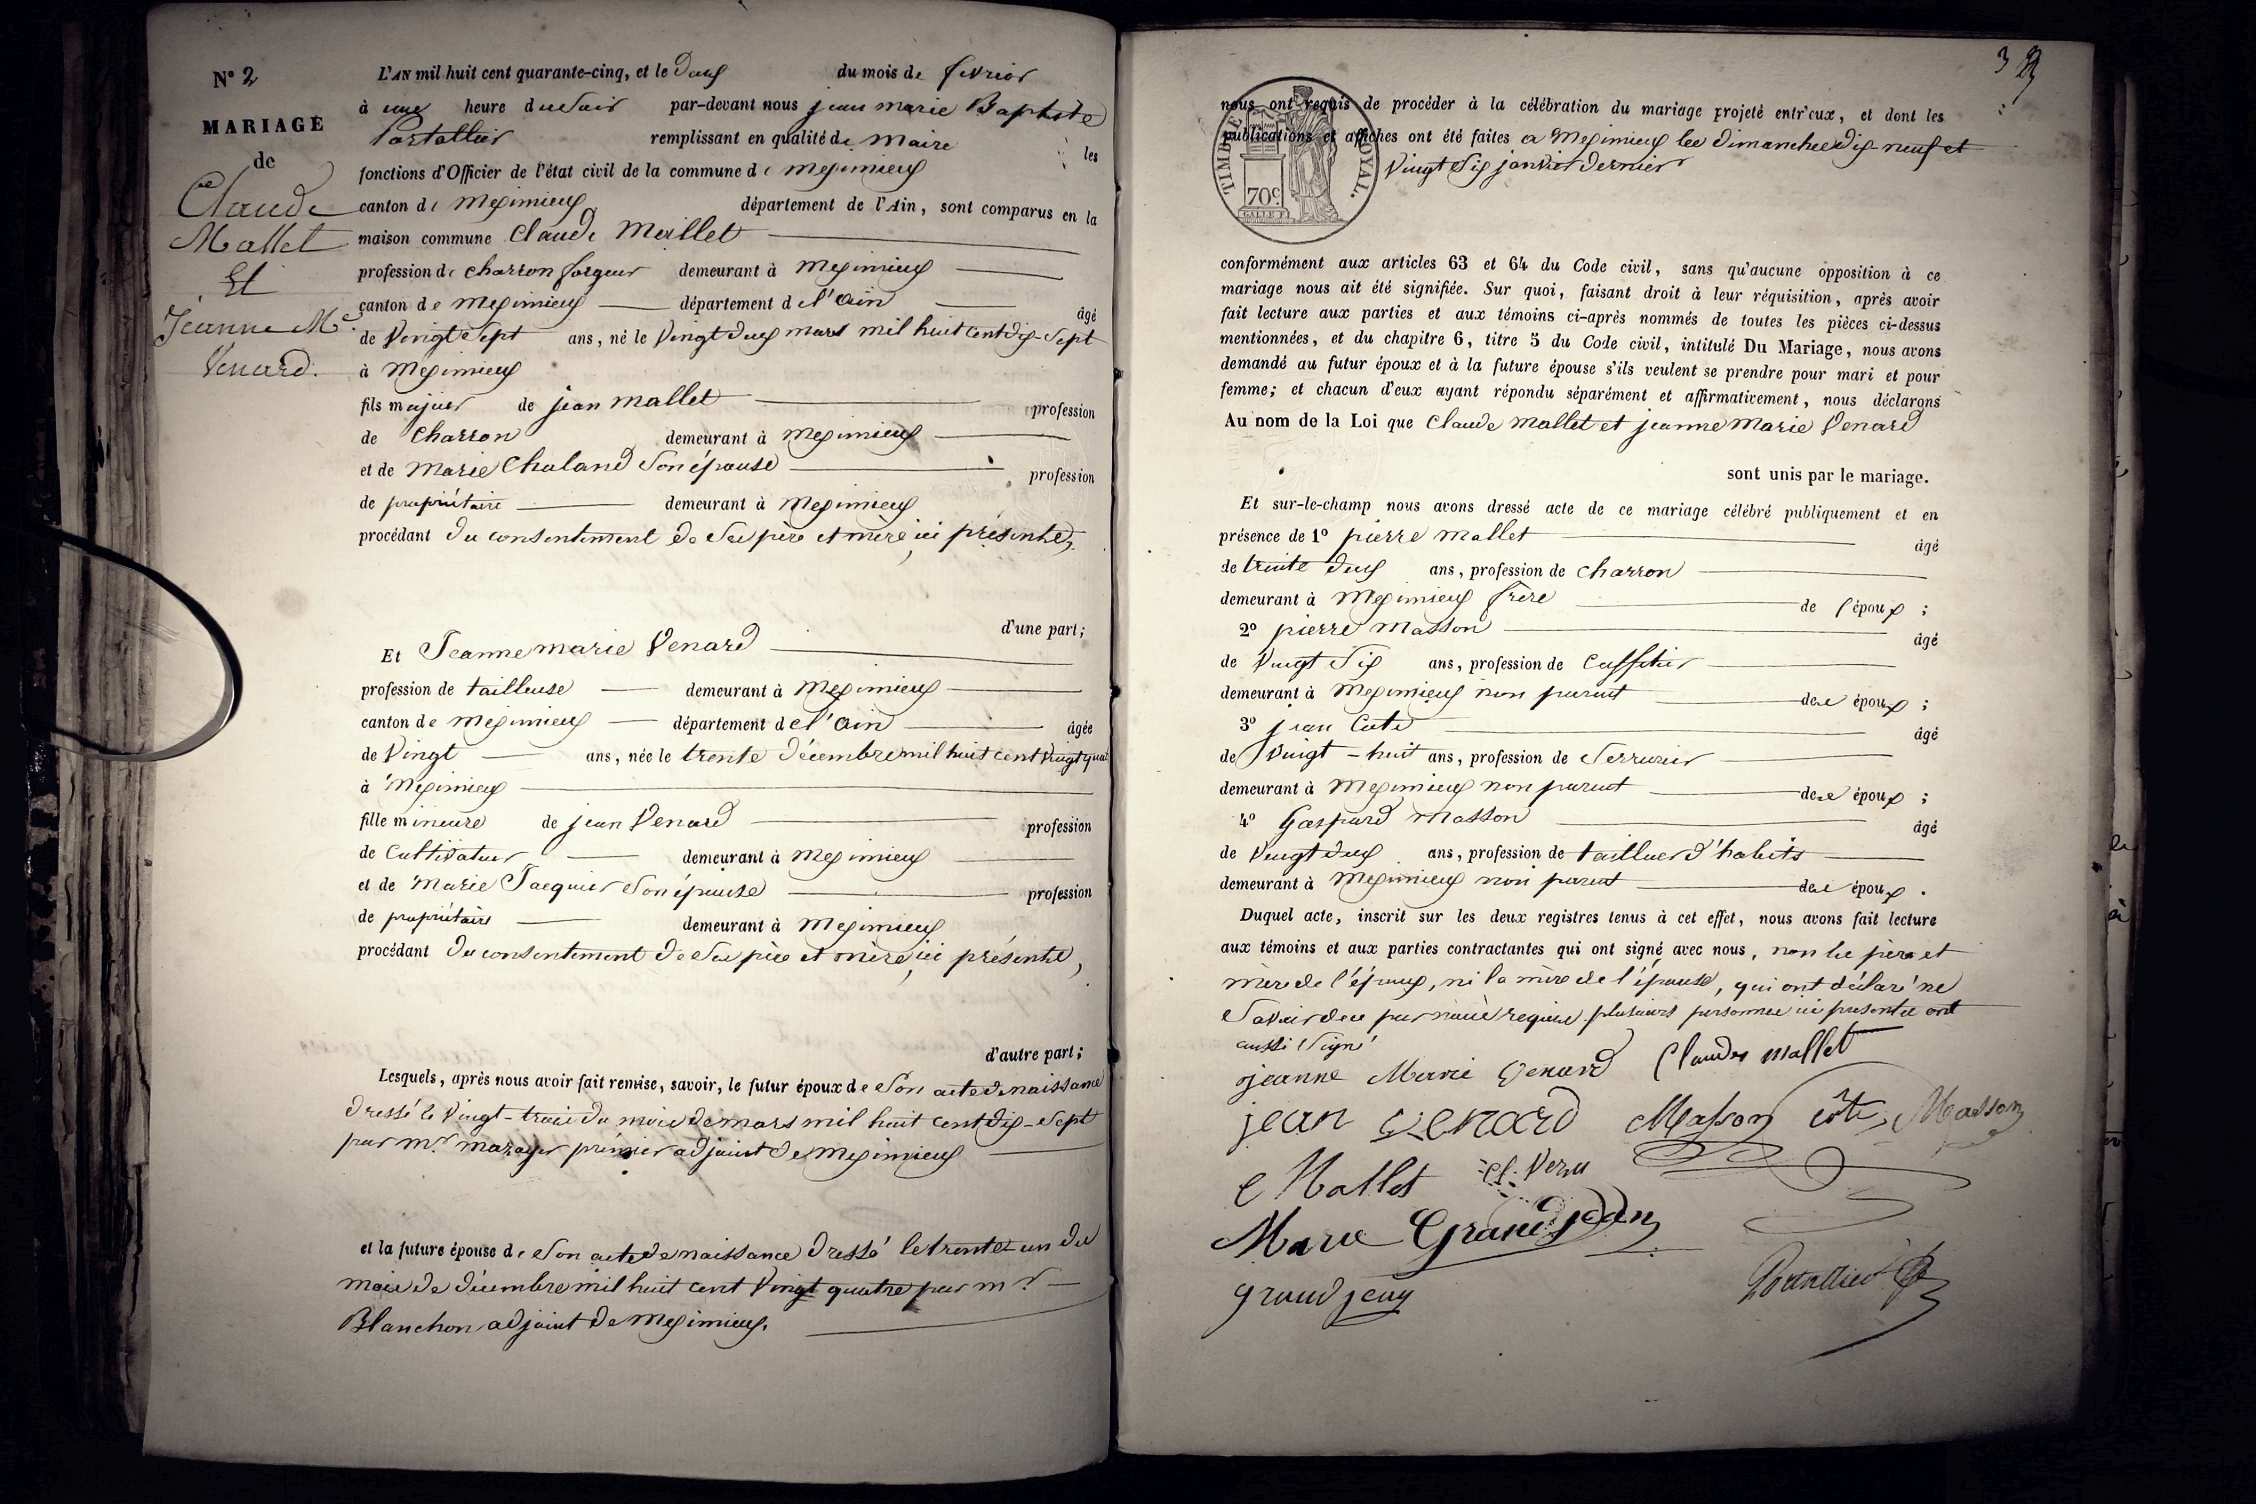 N° 2
MARIAGE
de
Claude
Mallet
Et
Jeanne Mie
Venard.
L'AN mil huit cent quarante-cinq, et le deux du mois de février
à une heure du soir par-devant nous jean marie Baptiste
Portallier remplissant en qualité de maire les
fonctions d'Officier de l'état civil de la commune de meximieux
canton de meximieux département de l'Ain, sont comparus en la
maison commune Claude Mallet
profession de charron forgeur demeurant à meximieux
canton de meximieux département de l'ain âgé
de vingt sept ans, né le vingt deux mars mil huit cent dix-sept
à meximieux
fils majeur de jean mallet profession
de charron demeurant à meximieux
et de marie Chaland son épouse profession
de propriétaire demeurant à meximieux
procédant du consentement de ses père et mère, ici présents,
d'une part;
Et Jeanne marie Venard
profession de tailleuse demeurant à meximieux
canton de meximieux département de l'ain âgée
de vingt ans, née le trente décembre mil huit cent vingt quat
à meximieux
fille mineure de jean Venard profession
de cultivateur demeurant à meximieux
et de marie Jacquier son épouse profession
de propriétaire demeurant à meximieux
procédant du consentement de ses père et mère, ici présents,
d'autre part;
Lesquels, après nous avoir fait remise, savoir, le futur époux de son acte de naissance
dressé le vingt-trois du mois de mars mil huit cent dix-sept
par mr. premier adjoint de meximieux
et la future épouse de son acte de naissance dressé le trente un du
mois de décembre mil huit cent vingt quatre par mr.
Blanchon adjoint de meximieux.
3
TIMBRE ROYAL.
70c.
nous ont requis de procéder à la célébration du mariage projeté entr'eux, et dont les
publications et affiches ont été faites a meximieux les dimanches dix-neuf et
vingt six janvier dernier
conformément aux articles 63 et 64 du Code civil, sans qu'aucune opposition à ce
mariage nous ait été signifiée. Sur quoi, faisant droit à leur réquisition, après avoir
fait lecture aux parties et aux témoins ci-après nommés de toutes les pièces ci-dessus
mentionnées, et du chapitre 6, titre 5 du Code civil, intitulé Du Mariage, nous avons
demandé au futur époux et à la future épouse s'ils veulent se prendre pour mari et pour
femme; et chacun d'eux ayant répondu séparément et affirmativement, nous déclarons
Au nom de la Loi que Claude mallet et jeanne marie Venard
sont unis par le mariage.
Et sur-le-champ nous avons dressé acte de ce mariage célébré publiquement et en
présence de 1° pierre mallet âgé
de trente deux ans, profession de charron
demeurant à meximieux frère de l'époux;
2° pierre masson âgé
de vingt six ans, profession de caffetier
demeurant à meximieux non parent des époux;
3° jean Cote âgé
de vingt-huit ans, profession de serrurier
demeurant à meximieux non parent des époux;
4° Gaspard masson âgé
de vingt deux ans, profession de tailleur d'habits
demeurant à meximieux non parent des époux.
Duquel acte, inscrit sur les deux registres tenus à cet effet, nous avons fait lecture
aux témoins et aux parties contractantes qui ont signé avec nous, non les père et
mère de l'époux, ni la mère de l'épouse, qui ont déclaré ne
savoir de ce par nous requis. plusieurs personnes ici présentes ont
aussi signé
jeanne Marie Venard Claude mallet
jean Venard Masson côte Masson
Mallet
Marie Grandjean
grand jean
Portallier